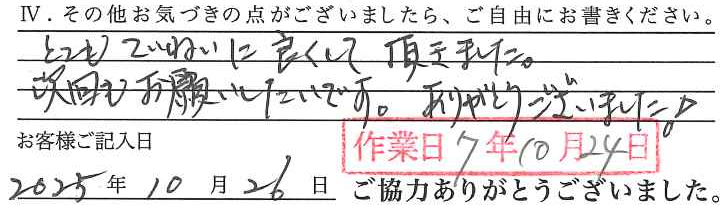 Ⅳ．その他お気づきの点がございましたら、ご自由にお書きください。
とてもていねいに良くして頂きました。
次回もお願いしたいです。ありがとうございました。
お客様ご記入日
作業日 7年10月24日
2025年10月26日 ご協力ありがとうございました。